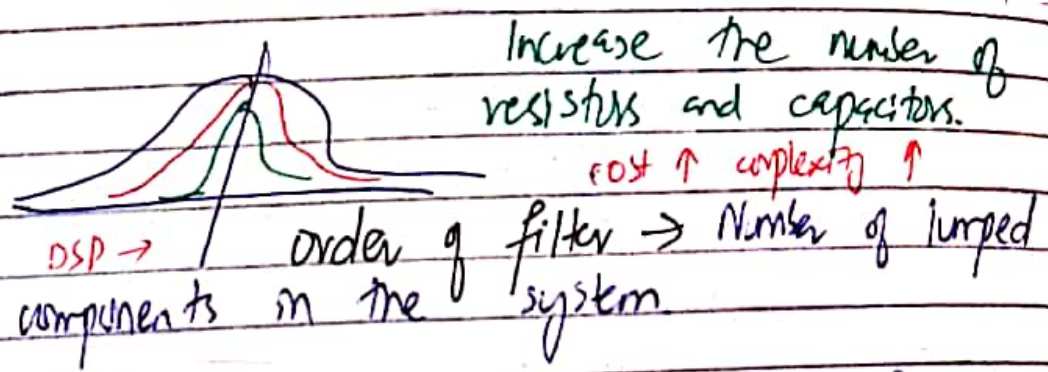 Increase the number of
resistors and capacitors.
cost ↑ complexity ↑
DSP → order of filter → Number of lumped
components in the system.